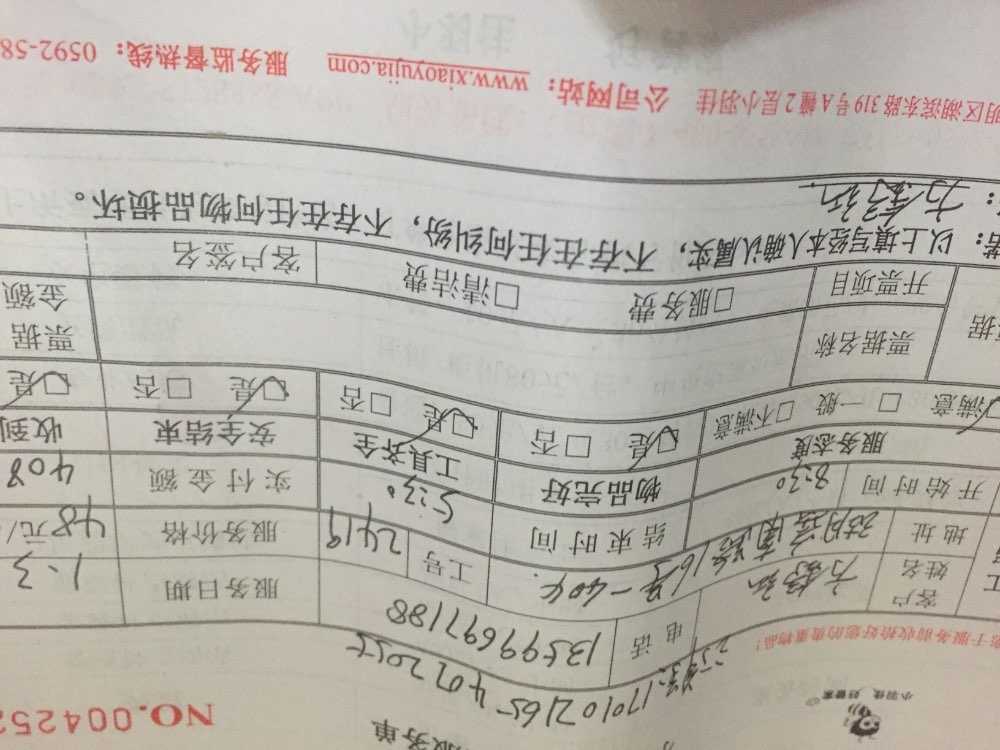 服务单
NO.004252
小羽佳 好管家
订单号:17010216540722055
您于服务前收拾好您的贵重物品!
客户姓名
电话 13599697188
服务日期 1.3
地址
16号-404.
工号 2419
服务价格 48元/
开始时间 8:30
结束时间 5:30
实付金额 408
服务态度
物品完好
工具齐全
安全结束
收到
☑满意 □一般 □不满意
☑是 □否
☑是 □否
☑是 □否
☑是
票据名称
票据金额
开票项目
□服务费 □清洁费
客户签名
:以上填写经本人确认属实,不存在任何纠纷,不存在任何物品损坏。
明区湖滨东路319号A幢2层小羽佳 公司网站:www.xiaoyujia.com 服务监督热线:0592-58